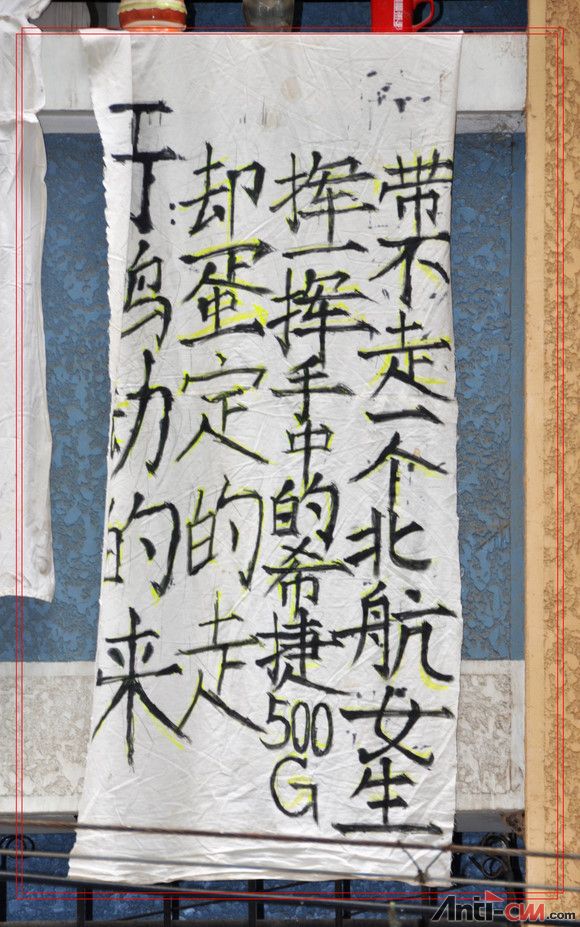 于鸟动的来
却蛋定的走
挥一挥手中的希捷500G
带不走一个北航女生
Anti-CM.com